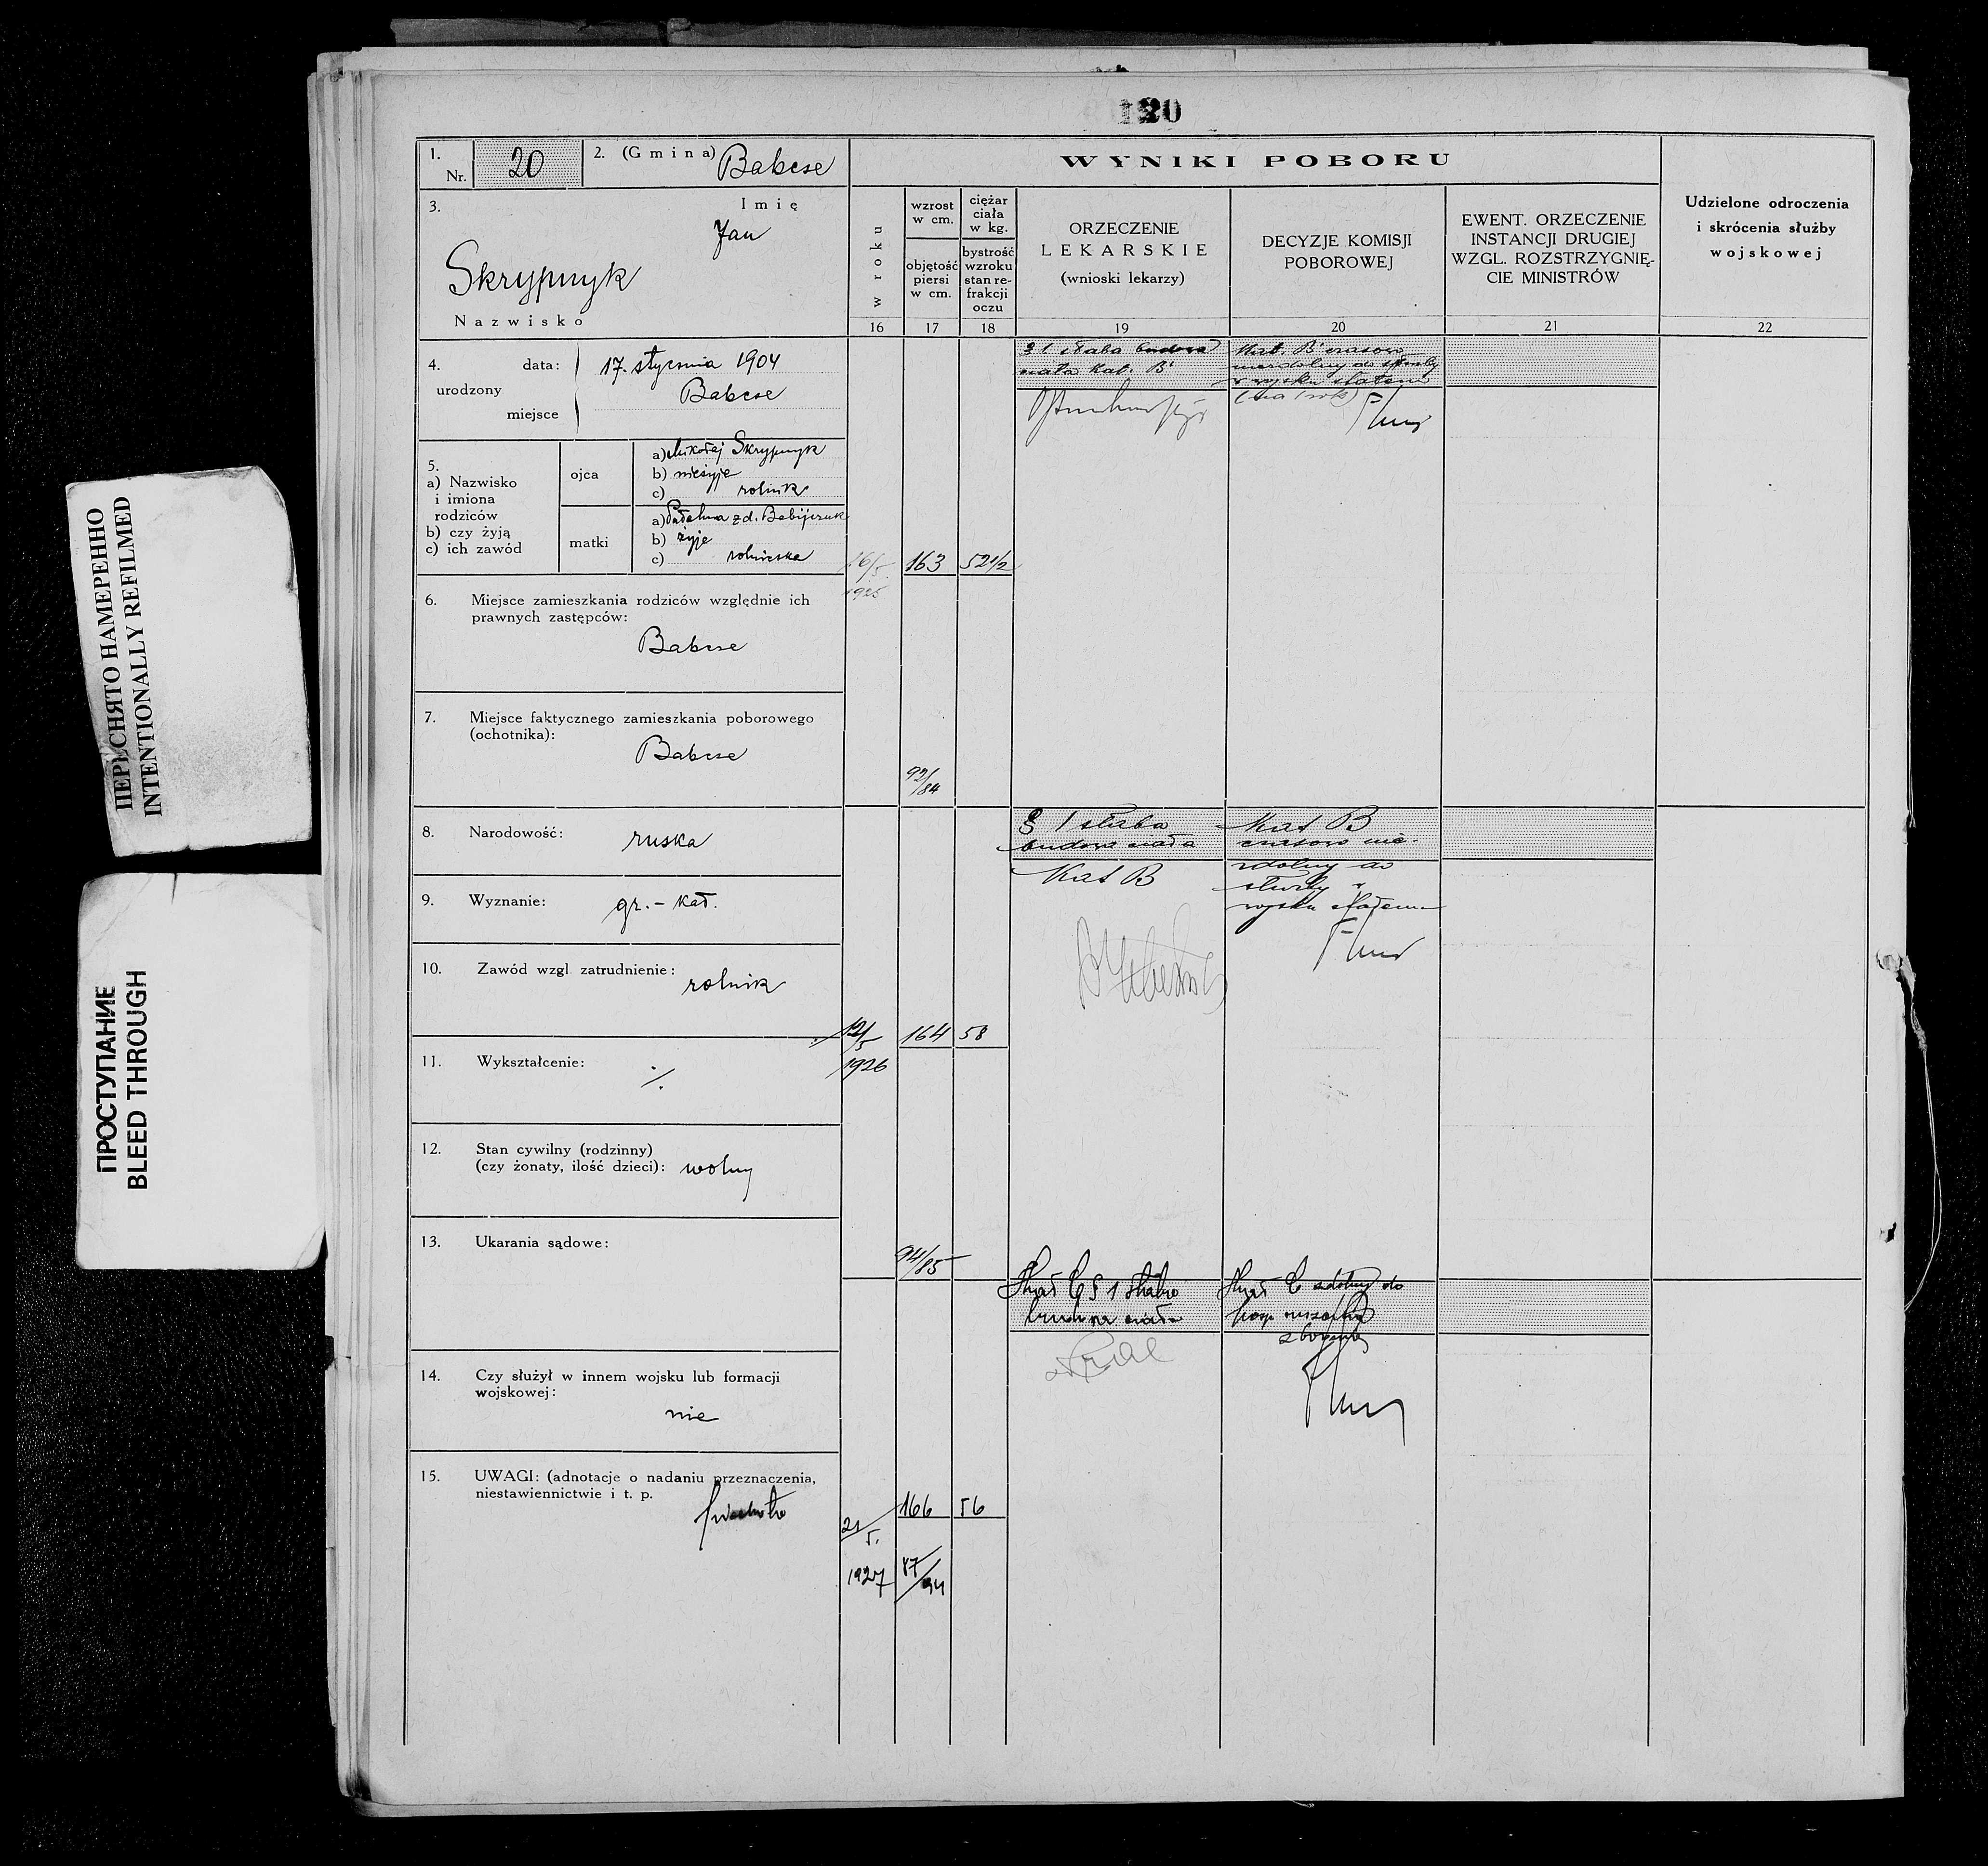 120
1.
Nr. 20
2. (Gmina) Babcse
WYNIKI POBORU
Udzielone odroczenia
i skrócenia służby
wojskowej
3.
Imię
Jan
Skrypnyk
Nazwisko
w roku
wzrost
w cm.
objętość
piersi
w cm.
ciężar
ciała
w kg.
bystrość
wzroku
stan re-
frakcji
oczu
ORZECZENIE
LEKARSKIE
(wnioski lekarzy)
DECYZJE KOMISJI
POBOROWEJ
EWENT. ORZECZENIE
INSTANCJI DRUGIEJ
WZGL. ROZSTRZYGNIĘ-
CIE MINISTRÓW
16 17 18 19 20 21 22
4.
urodzony
data: 17. stycznia 1904
miejsce Babcse
5.
a) Nazwisko
i imiona
rodziców
b) czy żyją
c) ich zawód
ojca
a) Mikołaj Skrypnyk
b) nieżyje
c) rolnik
matki
a) zd. Babijczuk
b) żyje
c) rolniczka
6. Miejsce zamieszkania rodziców względnie ich
prawnych zastępców:
Babcse
7. Miejsce faktycznego zamieszkania poborowego
(ochotnika):
Babcse
8. Narodowość: ruska
9. Wyznanie: gr.-kat.
10. Zawód wzgl. zatrudnienie: rolnik
11. Wykształcenie:
./.
12. Stan cywilny (rodzinny)
(czy żonaty, ilość dzieci): wolny
13. Ukarania sądowe:
14. Czy służył w innem wojsku lub formacji
wojskowej:
nie
15. UWAGI: (adnotacje o nadaniu przeznaczenia,
niestawiennictwie i t. p.
16/5. 163 52 1/2
1925
92/84
§ 1 słaba budowa
ciała Kat. B
Kat. B czasowo
niezdolny do służby
w wojsku stałem
(na 1 rok)
12/5 164 58
1926
94/85
§ 1 słaba
budowa ciała
Kat B
Kat B
czasowo nie-
zdolny do
służby w
wojsku stałem
21/5. 166 56
1927 87/94
Kat C § 1 słaba
budowa ciała
Kat C zdolny do
posp. ruszenia
z bronią
ПЕРЕСНЯТО НАМЕРЕННО
INTENTIONALLY REFILMED
ПРОСТУПАНИЕ
BLEED THROUGH